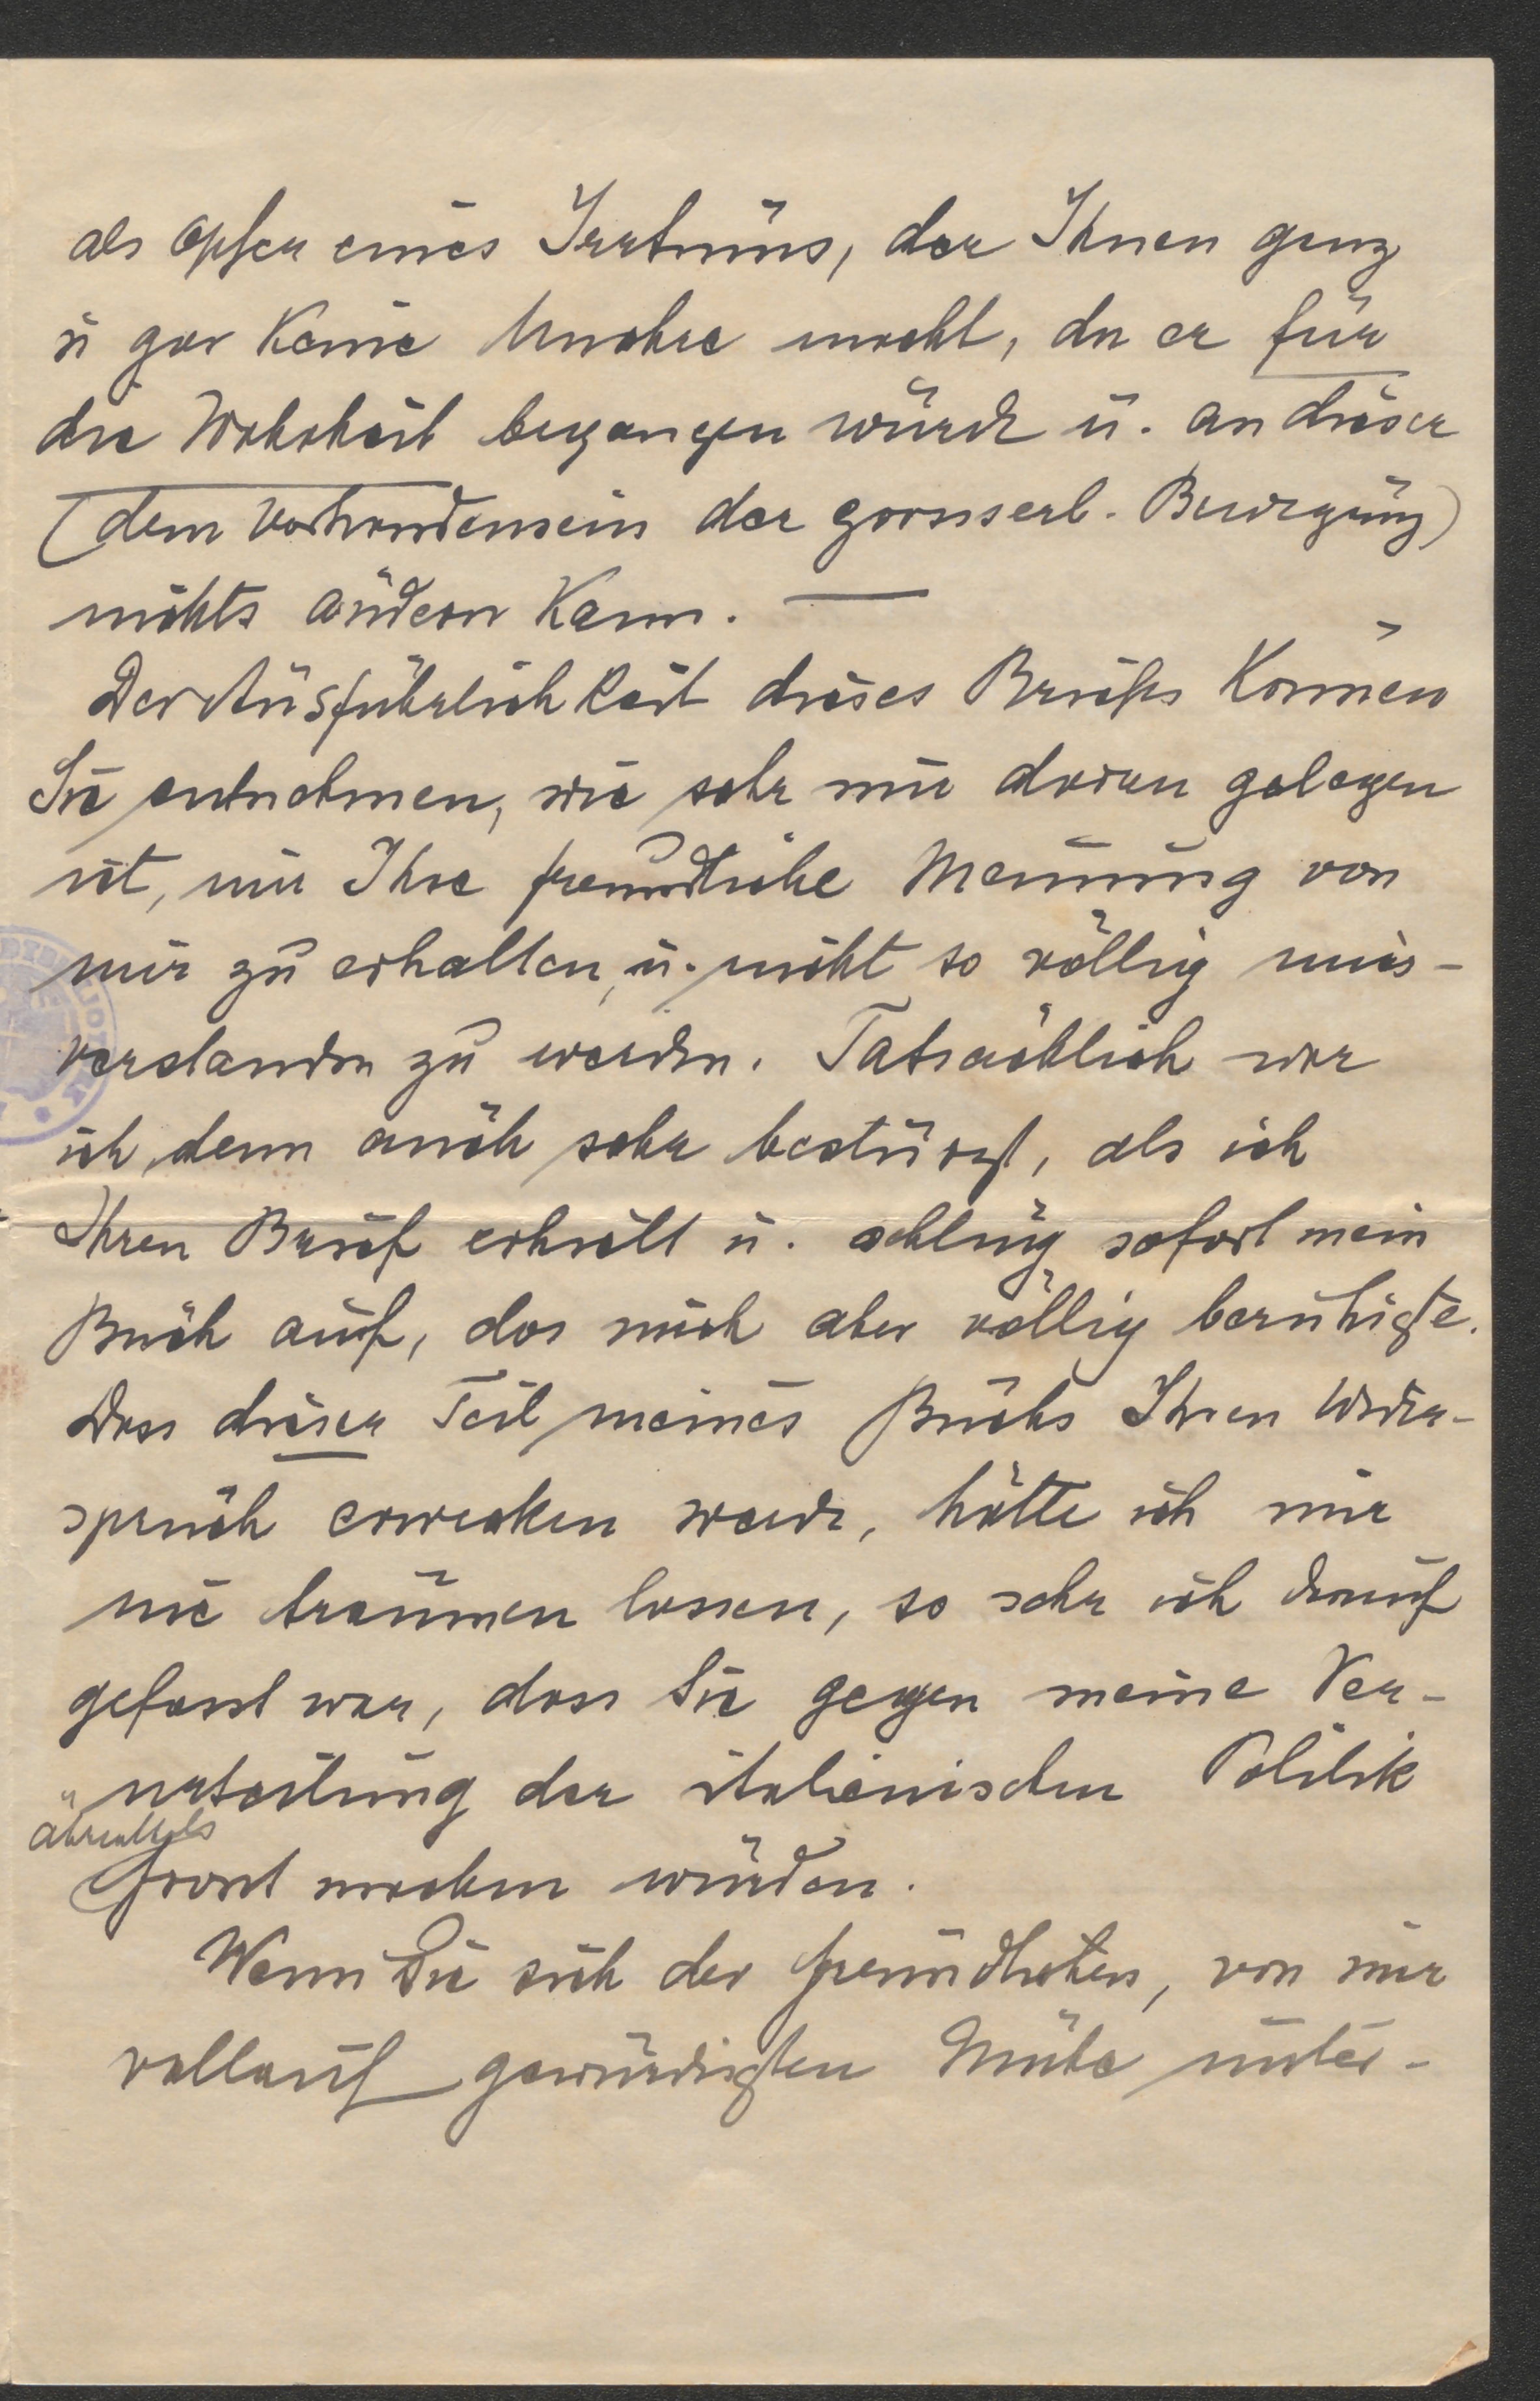 als Opfer eines Irrtums, der Ihnen ganz
u gar keine Unehre macht, da er für
die Wahrheit begangen wurde u. an dieser
(dem Vorhandensein der grossserb. Bewegung)
nichts ändern kann. —
Der Ausführlichkeit dieses Briefes können
Sie entnehmen, wie sehr mir daran gelegen
ist, mir Ihre freundliche Meinung von
mir zu erhalten, u. nicht so völlig miss-
verstanden zu werden. Tatsächlich war
ich denn auch sehr bestürzt, als ich
Ihren Brief erhielt u. schlug sofort mein
Buch auf, das mich aber völlig beruhigte.
Dass dieser Teil meines Buchs Ihren Wider-
spruch erwecken werde, hätte ich mir
nie träumen lassen, so sehr ich darauf
gefasst war, dass Sie gegen meine Ver-
urteilung der italienischen Politik
Ährenthals
Front machen würden.
Wenn Sie sich der freundlichen, von mir
vollauf gewürdigten Mühe unter-